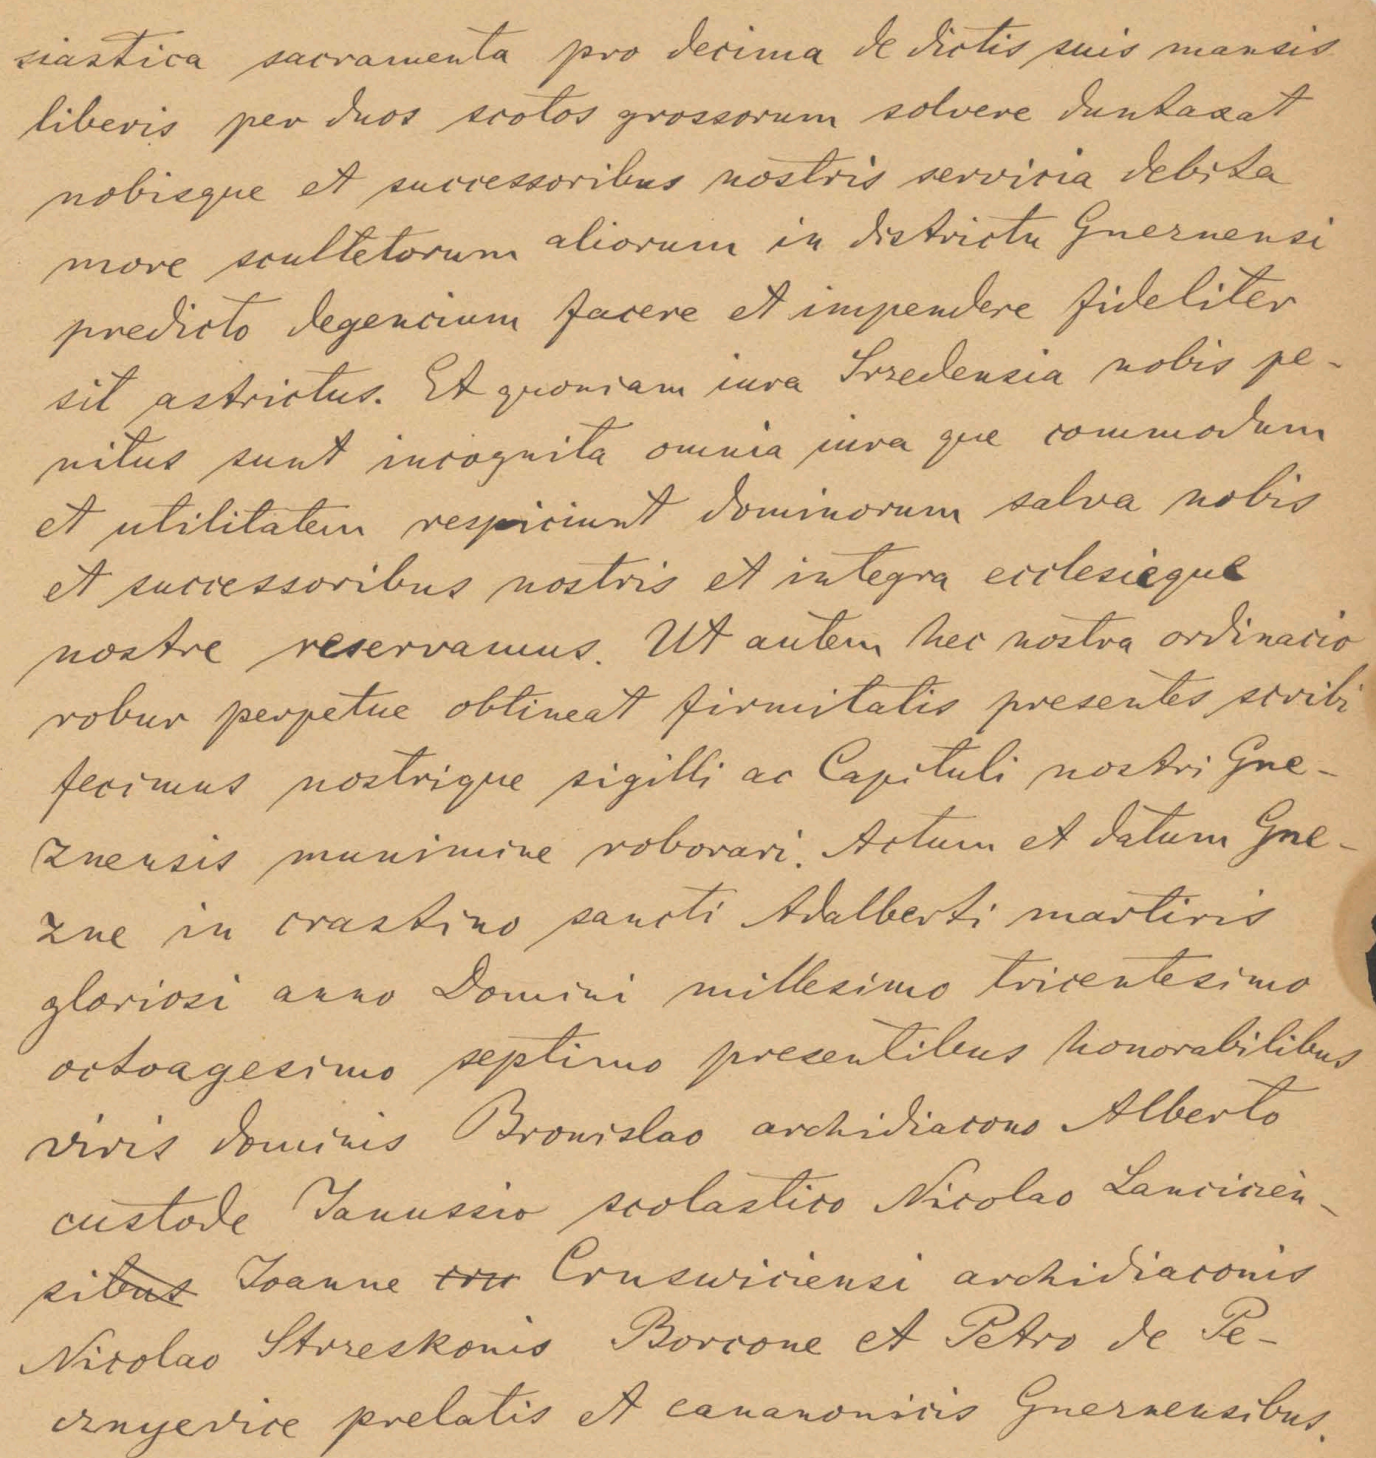 siastica sacramenta pro decima de dictis suis mansis
liberis per duos scotos grossorum solvere duntaxat
nobisque et successoribus nostris servicia debita
more scultetorum aliorum in districtu Gneznensi
predicto degencium facere et impendere fideliter
sit astrictus. Et quoniam iura Srzedensia nobis pe-
nitus sunt incognita omnia iura que commodum
et utilitatem respiciunt dominorum salva nobis
et successoribus nostris et integra ecclesieque
nostre reservamus. Ut autem hec nostra ordinacio
robur perpetue obtineat firmitatis presentes scribi
fecimus nostrique sigilli ac Capituli nostri Gne-
znensis munimine roborari. Actum et datum Gne-
zne in crastino sancti Adalberti martiris
gloriosi anno Domini millesimo tricentesimo
octoagesimo septimo presentibus honorabilibus
viris dominis Bronislao archidiacono Alberto
custode Janussio scolastico Nicolao Lancicien-
sibus Joanne cru Cruswiciensi archidiaconis
Nicolao Strzeskonis Borcone et Petro de Pe-
cznyevice prelatis et cananonicis Gneznensibus.